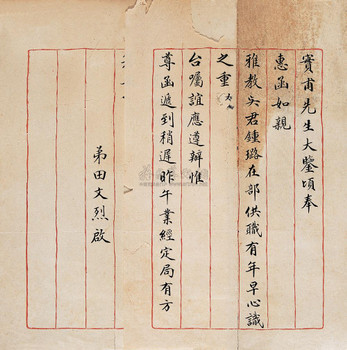 實甫先生大鑒頃奉
惠函如親
雅教吳君鍾璐在部供職有年早心識
之重
台囑誼應遵辦惟
尊函遞到稍遲昨午業經定局有方
弟田文烈啟